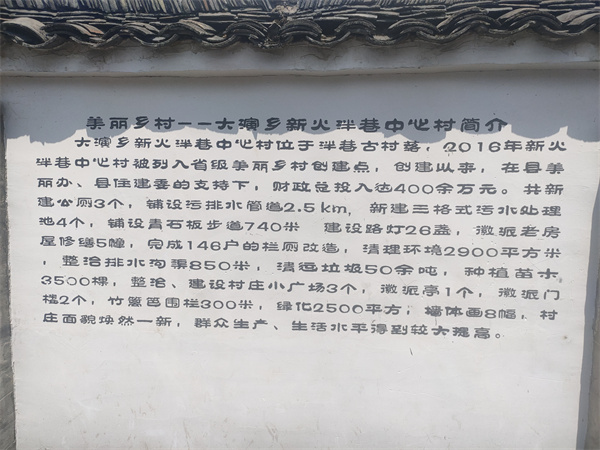 美丽乡村--大演乡新火泮巷中心村简介
大演乡新火泮巷中心村位于泮巷古村落，2016年新火
泮巷中心村被列入省级美丽乡村创建点，创建以来，在县美
丽办、县住建委的支持下，财政总投入达400余万元。共新
建公厕3个，铺设污排水管道2.5km，新建三格式污水处理
池4个，铺设青石板步道740米 建设路灯26盏，徽派老房
屋修缮5幢，完成146户的栏厕改造，清理环境2900平方米
，整治排水沟渠850米，清运垃圾50余吨，种植苗木
3500棵，整治、建设村庄小广场3个，徽派亭1个，徽派门
楼2个，竹篱笆围栏300米，绿化2500平方，墙体画8幅，村
庄面貌焕然一新，群众生产、生活水平得到较大提高。